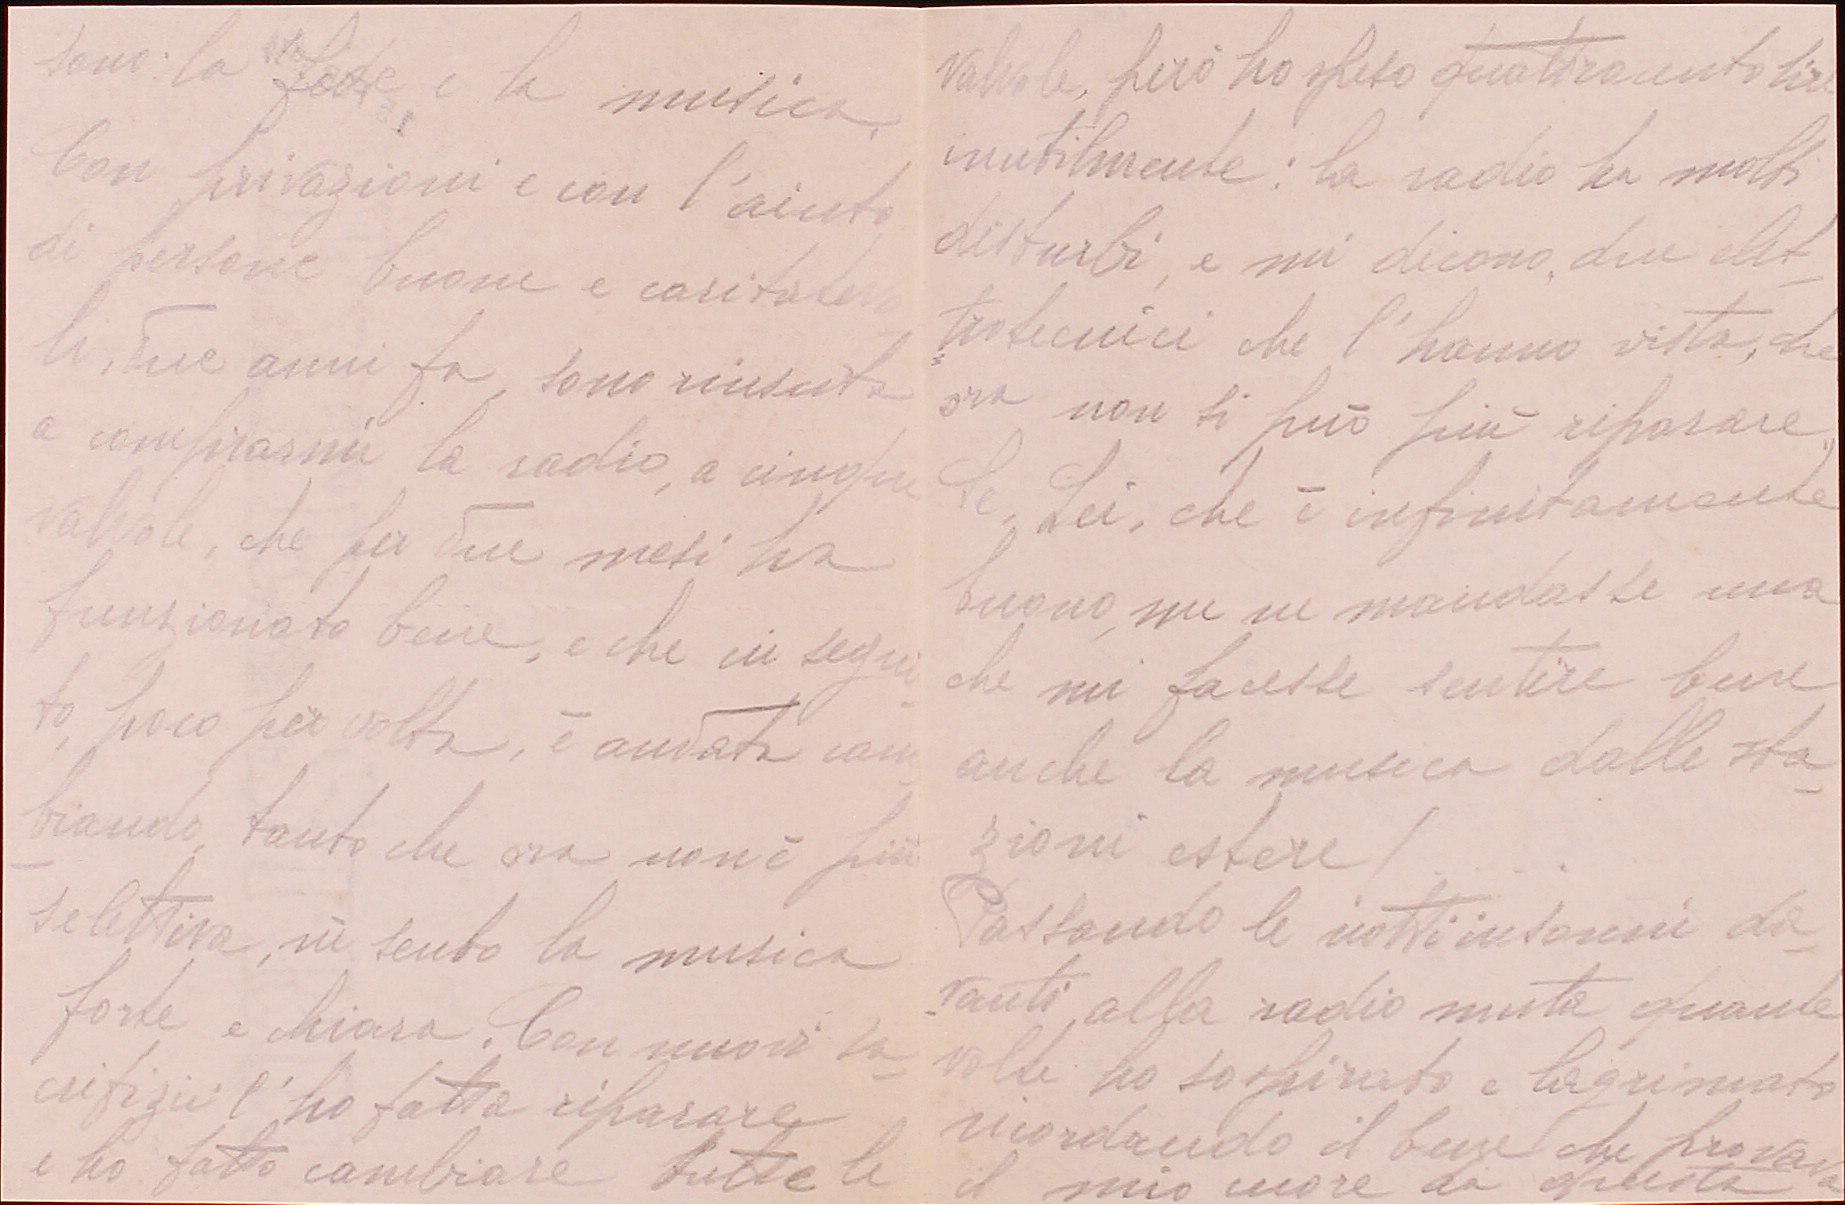 sono: la fede e la musica.
Con privazioni e con l'aiuto
di persone buone e caritatevo
li, due anni fa, sono riuscita
a comprarmi la radio, a cinque
valvole, che per due mesi ha
funzionato bene, e che in segui
to, poco per volta, è andata cam
biando, tanto che ora non è più
selettiva, nè sento la musica
forte e chiara. Con nuovi sa
crifizii l'ho fatta riparare
e ho fatto cambiare tutte le
valvole, però ho speso quattrocento lire
inutilmente: la radio ha molti
disturbi, e mi dicono, due elet
trotecnici che l'hanno vista, che
ora non si può più riparare.
Se, Lei, che è infinitamente
buono, me ne mandasse una
che mi facesse sentire bene
anche la musica dalle sta
zioni estere! . . . .
Passando le notti insonni da
vanti alla radio muta quante
volte ho sospirato e lagrimato
ricordando il bene che provava
il mio cuore da questa